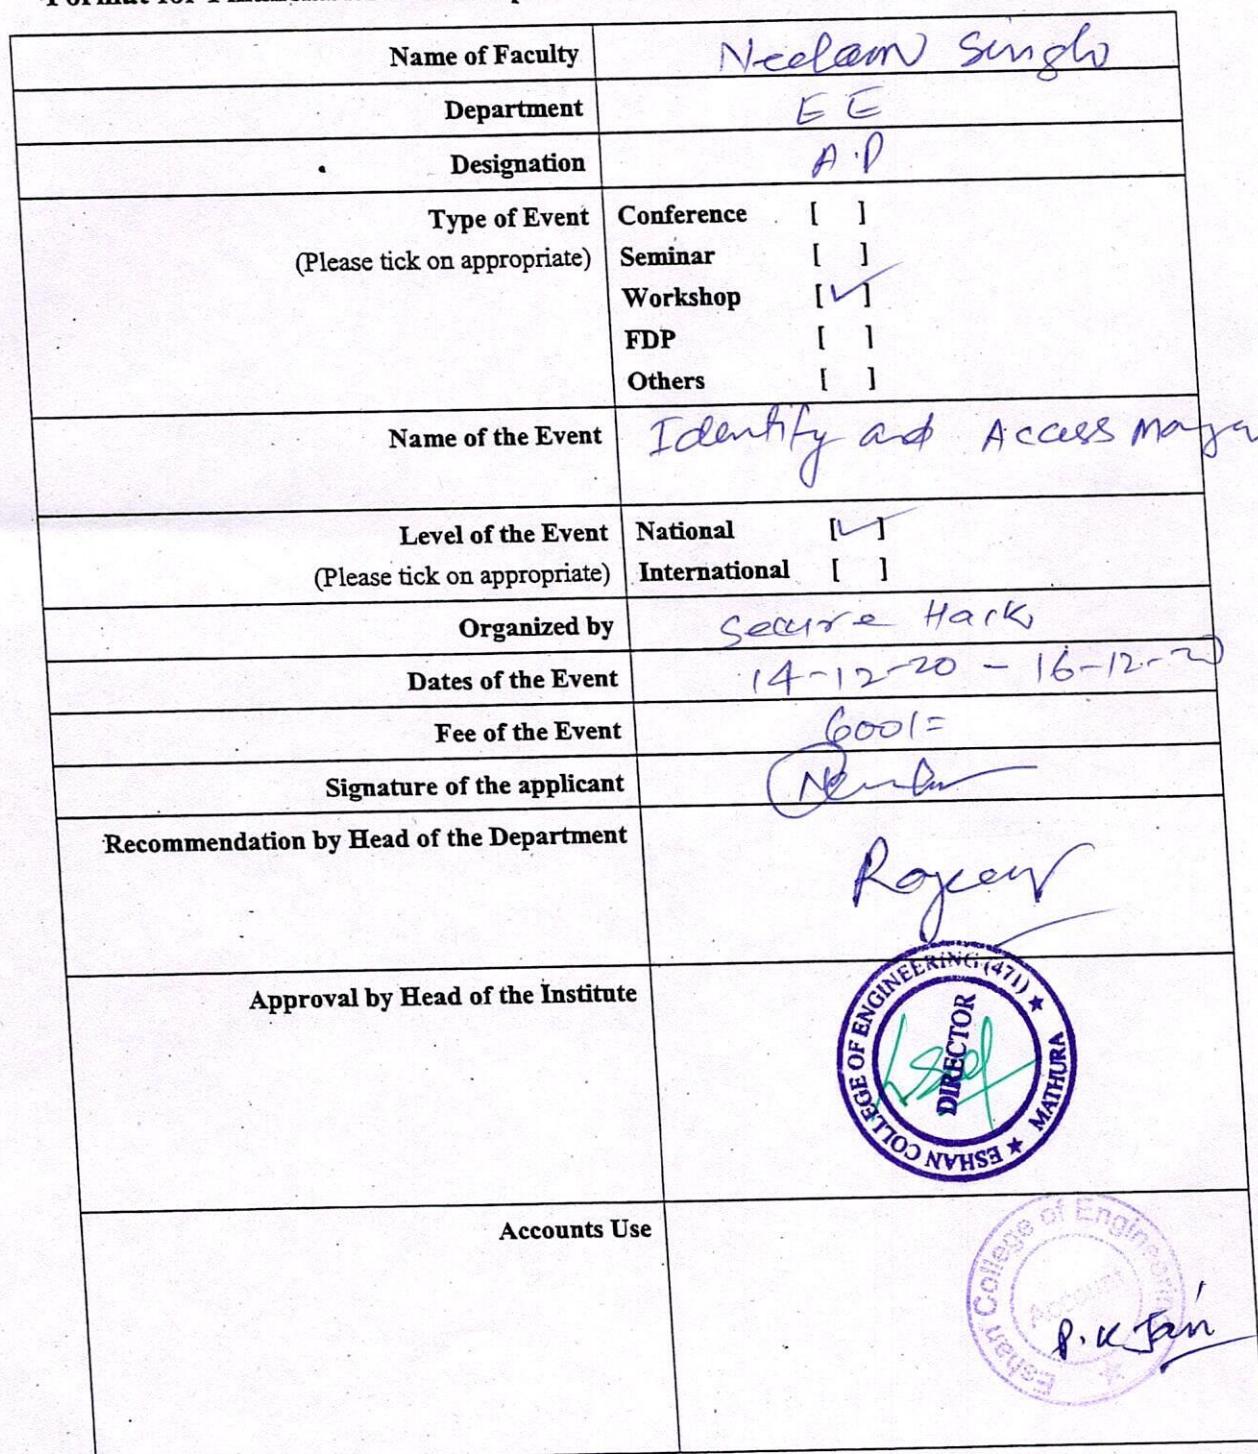 Format for
Name of Faculty Neelam Singh
Department E E
Designation A.P
Type of Event Conference [ ]
(Please tick on appropriate) Seminar [ ]
Workshop [✓]
FDP [ ]
Others [ ]
Name of the Event Identify and Access Mana
Level of the Event National [✓]
(Please tick on appropriate) International [ ]
Organized by Secure Hack
Dates of the Event 14-12-20 - 16-12-20
Fee of the Event 600/=
Signature of the applicant
Recommendation by Head of the Department
Approval by Head of the Institute
ESHAN COLLEGE OF ENGINEERING (471) ★ MATHURA ★
DIRECTOR
Accounts Use
Eshan College of Engineering
Account
P.K Jain